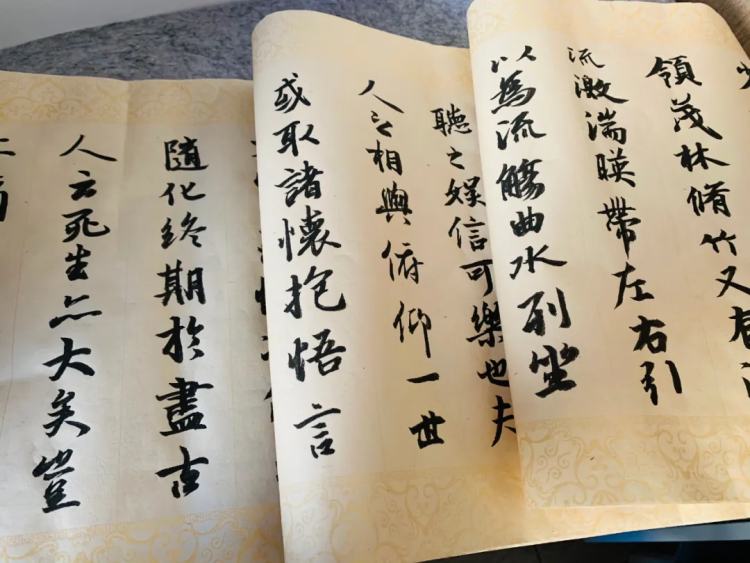 領茂林脩竹又有
流激湍暎帶左右引
以為流觴曲水列坐
聽之娛信可樂也夫
人之相與俯仰一世
或取諸懷抱悟言
隨化終期於盡古
人云死生亦大矣豈